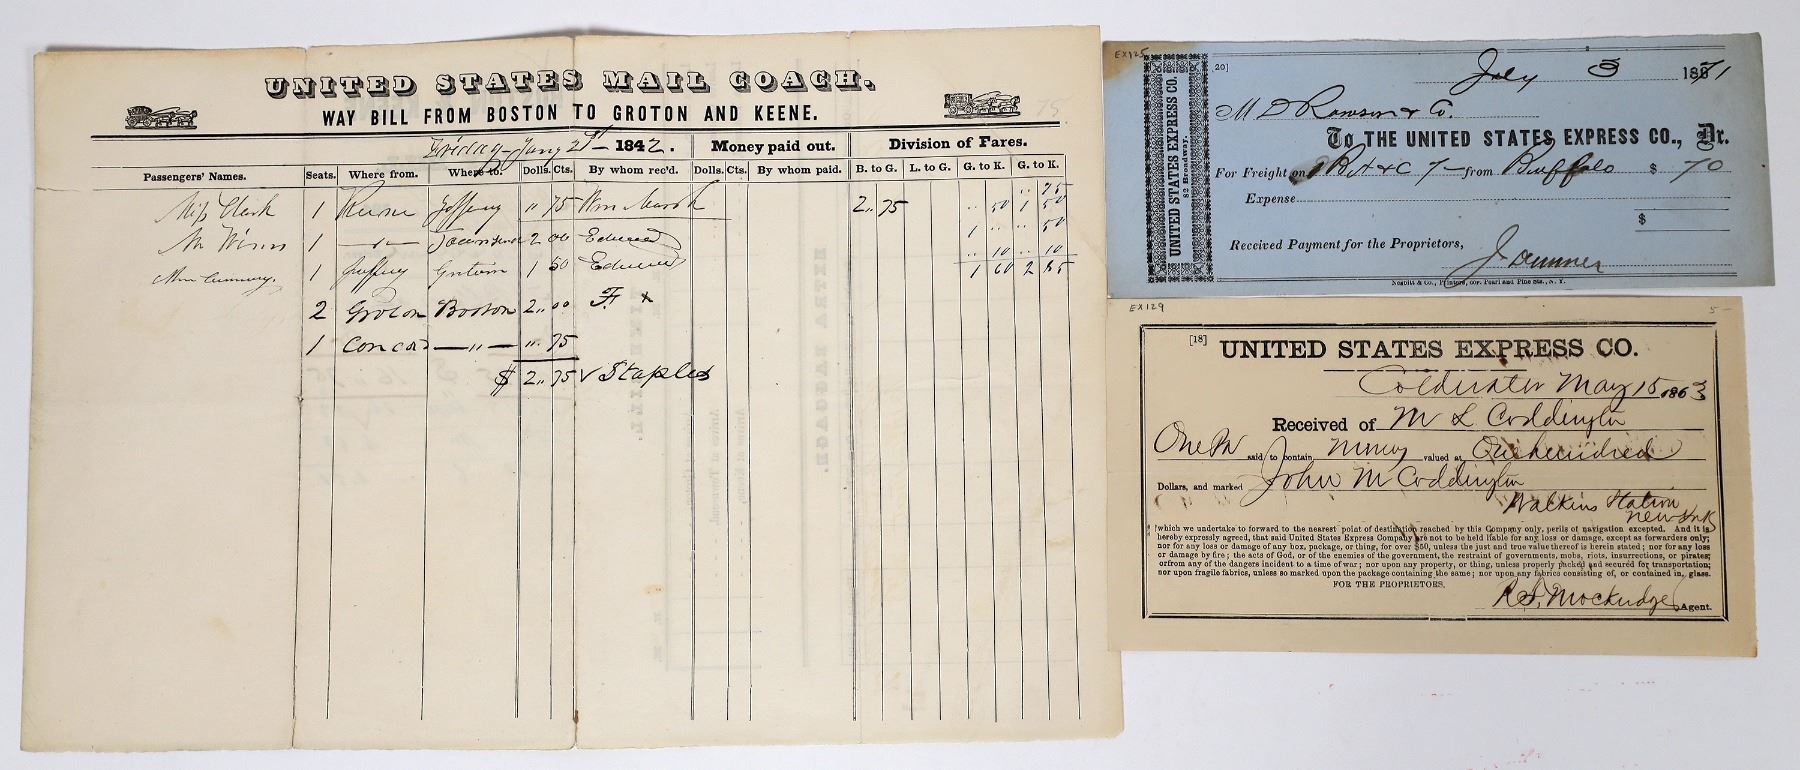 UNITED STATES MAIL COACH.
WAY BILL FROM BOSTON TO GROTON AND KEENE.
75
Friday Jany 21st 1842.
Money paid out.
Division of Fares.
Passengers' Names. Seats. Where from. Where to. Dolls. Cts. By whom rec'd. Dolls. Cts. By whom paid. B. to G. L. to G. G. to K. G. to K.
" 75
Miss Clark 1 Keene Jaffrey " 75 Wm Marsh 2 " 75 " 50 1 50
Mr 1 — " — Townsend 2 00 Edward 1 " " 50
" 10 " 10
1 Jaffrey Groton 1 50 Edward 1 60 2 85
2 Groton Boston 2 " 00 F. x
1 Concord — " — " 75
$ 2 " 75 v Staples
EX125
UNITED STATES EXPRESS CO.
82 Broadway.
20]
July 3 1871
M D Rawson & Co.
To THE UNITED STATES EXPRESS CO., Dr.
For Freight on from Buffalo $ 70
Expense
$
Received Payment for the Proprietors,
J Dumner
Nesbitt & Co., Printers, cor. Pearl and Pine Sts., N. Y.
EX129
5-
[18]
UNITED STATES EXPRESS CO.
Coldwater May 15 1863
Received of M L Coddington
One Pk said to contain money valued at One hundred
Dollars, and marked John M Coddington
Watkins Station
New York
which we undertake to forward to the nearest point of destination reached by this Company only, perils of navigation excepted. And it is
hereby expressly agreed, that said United States Express Company are not to be held liable for any loss or damage, except as forwarders only;
nor for any loss or damage of any box, package, or thing, for over $50, unless the just and true value thereof is herein stated; nor for any loss
or damage by fire; the acts of God, or of the enemies of the government, the restraint of governments, mobs, riots, insurrections, or pirates;
orfrom any of the dangers incident to a time of war; nor upon any property, or thing, unless properly packed and secured for transportation;
nor upon fragile fabrics, unless so marked upon the package containing the same; nor upon any fabrics consisting of, or contained in, glass.
FOR THE PROPRIETORS,
R S. Mockridge Agent.